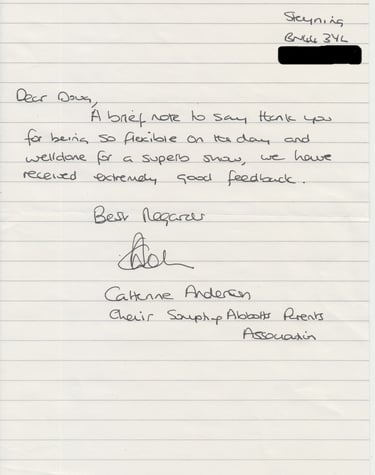 Steyning
BN44 3YL
Dear Doug,
A brief note to say thank you
for being so flexible on the day and
welldone for a superb show, we have
received extremely good feedback.
Best Regards
Catherine Anderson
Chair Abbotts Parents
Association